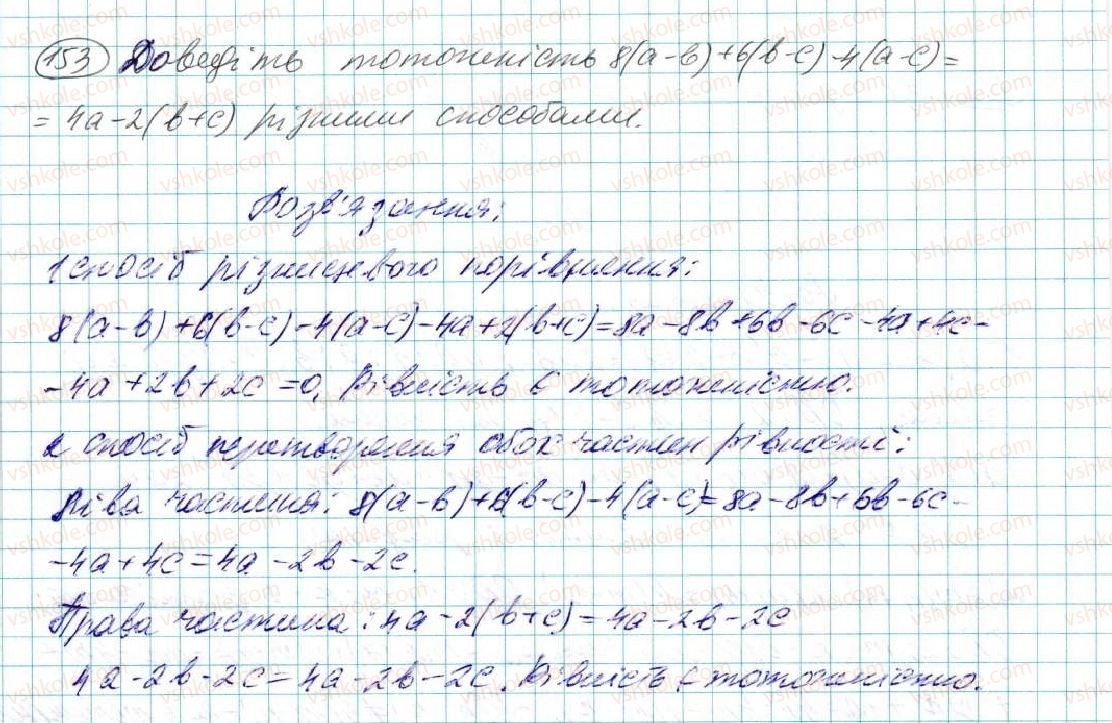 153 Доведіть тотожність 8(a-b)+6(b-c)-4(a-c)=
= 4a-2(b+c) різними способами.
Розв'язання:
1 спосіб різницевого порівняння:
8(a-b)+6(b-c)-4(a-c)-4a+2(b+c)=8a-8b+6b-6c-4a+4c-
-4a+2b+2c=0. Рівність є тотожністю.
2 спосіб перетворення обох частин рівності:
Ліва частина: 8(a-b)+6(b-c)-4(a-c)=8a-8b+6b-6c-
-4a+4c=4a-2b-2c.
Права частина: 4a-2(b+c)=4a-2b-2c
4a-2b-2c=4a-2b-2c. Рівність є тотожністю.
vshkole.com